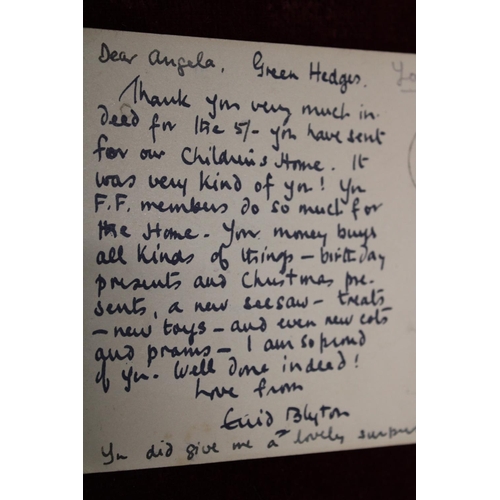 Dear Angela, Green Hedges.
Thank you very much in-
deed for the 5/- you have sent
for our Children's Home. It
was very kind of you! You
F.F. members do so much for
the Home. Your money buys
all kinds of things - birthday
presents and Christmas pre-
sents, a new seesaw - treats
- new toys - and even new cots
and prams - I am so proud
of you. Well done indeed!
Love from
Enid Blyton
You did give me a lovely